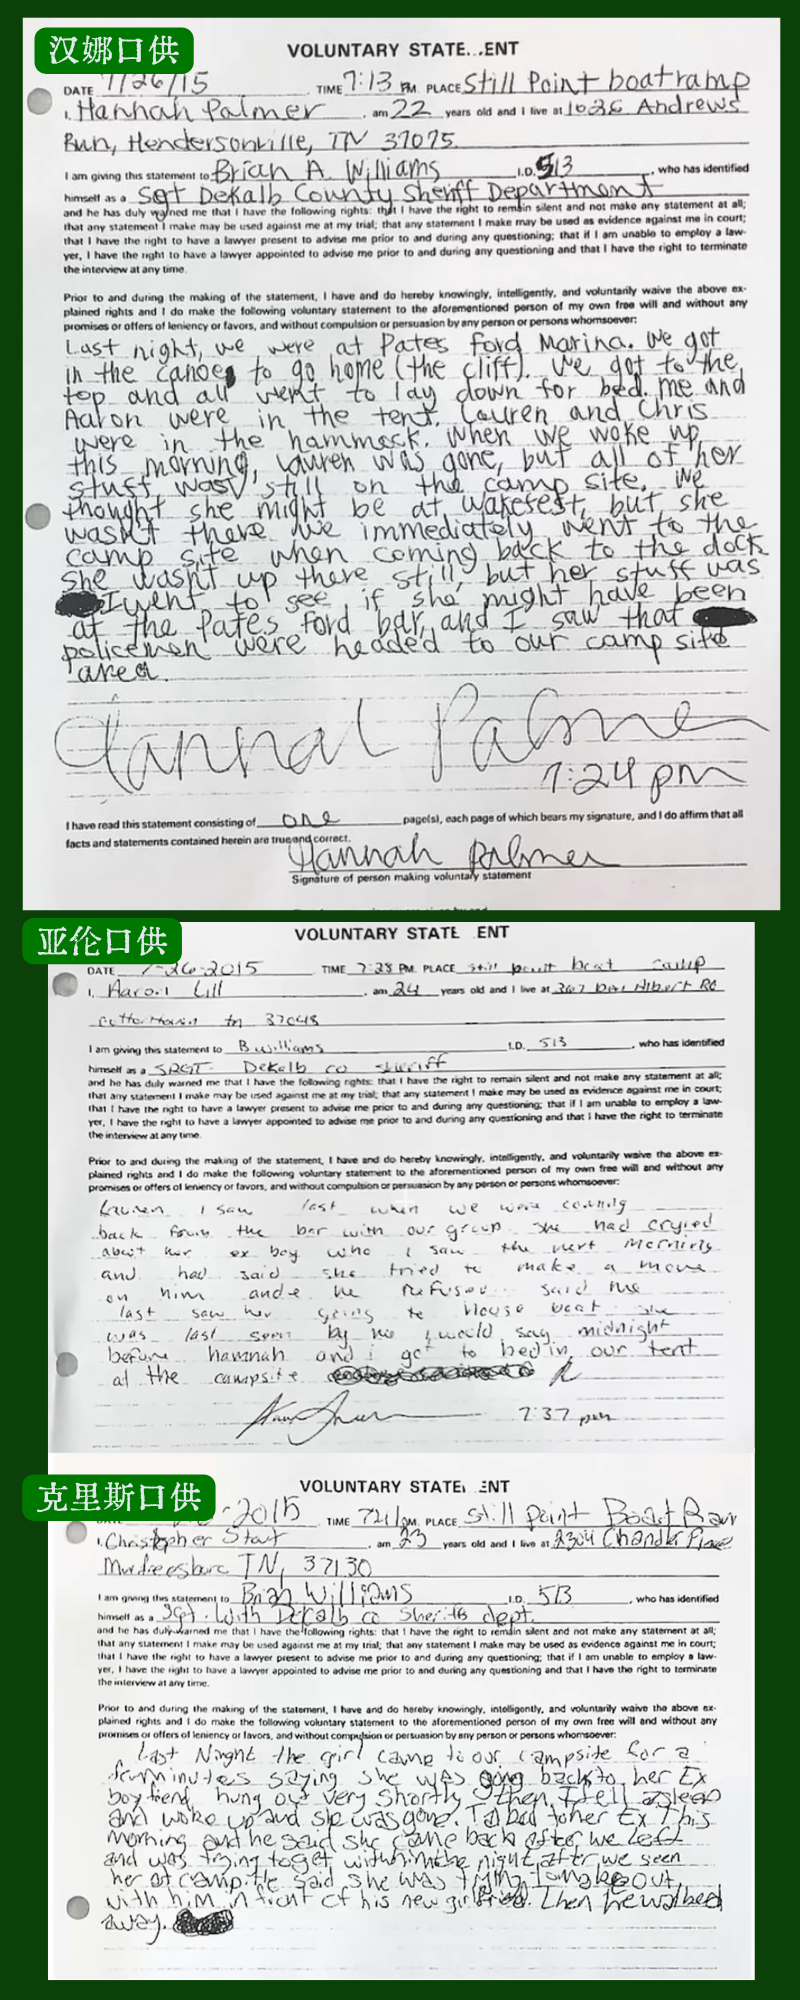 汉娜口供
VOLUNTARY STATE...ENT
DATE 7/26/15 TIME 7:13 PM. PLACE Still Point boatramp
I, Hannah Palmer, am 22 years old and I live at 1026 Andrews
Run, Hendersonville, TN 37075
I am giving this statement to Brian A. Williams I.D. 513, who has identified
himself as a Sgt Dekalb County Sheriff Department
and he has duly warned me that I have the following rights: that I have the right to remain silent and not make any statement at all;
that any statement I make may be used against me at my trial; that any statement I make may be used as evidence against me in court;
that I have the right to have a lawyer present to advise me prior to and during any questioning; that if I am unable to employ a law-
yer, I have the right to have a lawyer appointed to advise me prior to and during any questioning and that I have the right to terminate
the interview at any time.
Prior to and during the making of the statement, I have and do hereby knowingly, intelligently, and voluntarily waive the above ex-
plained rights and I do make the following voluntary statement to the aforementioned person of my own free will and without any
promises or offers of leniency or favors, and without compulsion or persuasion by any person or persons whomsoever:
Last night, we were at Pates Ford Marina. We got
in the canoe to go home (the cliff). We got to the
top and all went to lay down for bed. me and
Aaron were in the tent. Lauren and Chris
were in the hammock. When we woke up
this morning, Lauren was gone, but all of her
stuff was still on the camp site. We
thought she might be at wakefest, but she
wasn't there. We immediately went to the
camp site when coming back to the dock
she wasn't up there still, but her stuff was
I went to see if she might have been
at the Pates Ford bar, and I saw that
policemen were headed to our camp site
area.
Hannah Palmer
7:24 pm
I have read this statement consisting of one page(s), each page of which bears my signature, and I do affirm that all
facts and statements contained herein are true and correct.
Hannah Palmer
Signature of person making voluntary statement
亚伦口供
VOLUNTARY STATE ENT
DATE 7-26-2015 TIME 7:28 PM. PLACE still point boat camp
I, Aaron Lill, am 24 years old and I live at
tn 37048
I am giving this statement to B Williams I.D. 513, who has identified
himself as a SRGT Dekalb co sheriff
and he has duly warned me that I have the following rights: that I have the right to remain silent and not make any statement at all;
that any statement I make may be used against me at my trial; that any statement I make may be used as evidence against me in court;
that I have the right to have a lawyer present to advise me prior to and during any questioning; that if I am unable to employ a law-
yer, I have the right to have a lawyer appointed to advise me prior to and during any questioning and that I have the right to terminate
the interview at any time.
Prior to and during the making of the statement, I have and do hereby knowingly, intelligently, and voluntarily waive the above ex-
plained rights and I do make the following voluntary statement to the aforementioned person of my own free will and without any
promises or offers of leniency or favors, and without compulsion or persuasion by any person or persons whomsoever:
Lauren I saw last when we were coming
back from the bar with our group. she had cryied
about her ex boy who I saw the next morning
and had said she tried to make a move
on him and he refused. said he
last saw her going to house boat she
was last seen by me I would say midnight
before hannah and i got to bed in our tent
at the campsite
7:37 pm
克里斯口供
VOLUNTARY STATE ENT
-2015 TIME 721 PM. PLACE Still Point Boat Ram
I, Christopher Stout, am 23 years old and I live at 2304 Chandler Place
TN, 37130
I am giving this statement to Brian Williams I.D. 513, who has identified
himself as a Sgt. with Dekalb co Sheriffs dept.
and he has duly warned me that I have the following rights: that I have the right to remain silent and not make any statement at all;
that any statement I make may be used against me at my trial; that any statement I make may be used as evidence against me in court;
that I have the right to have a lawyer present to advise me prior to and during any questioning; that if I am unable to employ a law-
yer, I have the right to have a lawyer appointed to advise me prior to and during any questioning and that I have the right to terminate
the interview at any time.
Prior to and during the making of the statement, I have and do hereby knowingly, intelligently, and voluntarily waive the above ex-
plained rights and I do make the following voluntary statement to the aforementioned person of my own free will and without any
promises or offers of leniency or favors, and without compulsion or persuasion by any person or persons whomsoever:
Last Nihght the girl came to our campsite for a
few minutes saying she was going back to her Ex
boyfriend, hung out very shortly then I fell asleep
and woke up and she was gone. Talked to her Ex This
morning and he said she came back after we left
and was trying to get with him in the night after we seen
her at camp. He said she was trying to make out
with him in front of his new girlfriend. Then he walked
away.